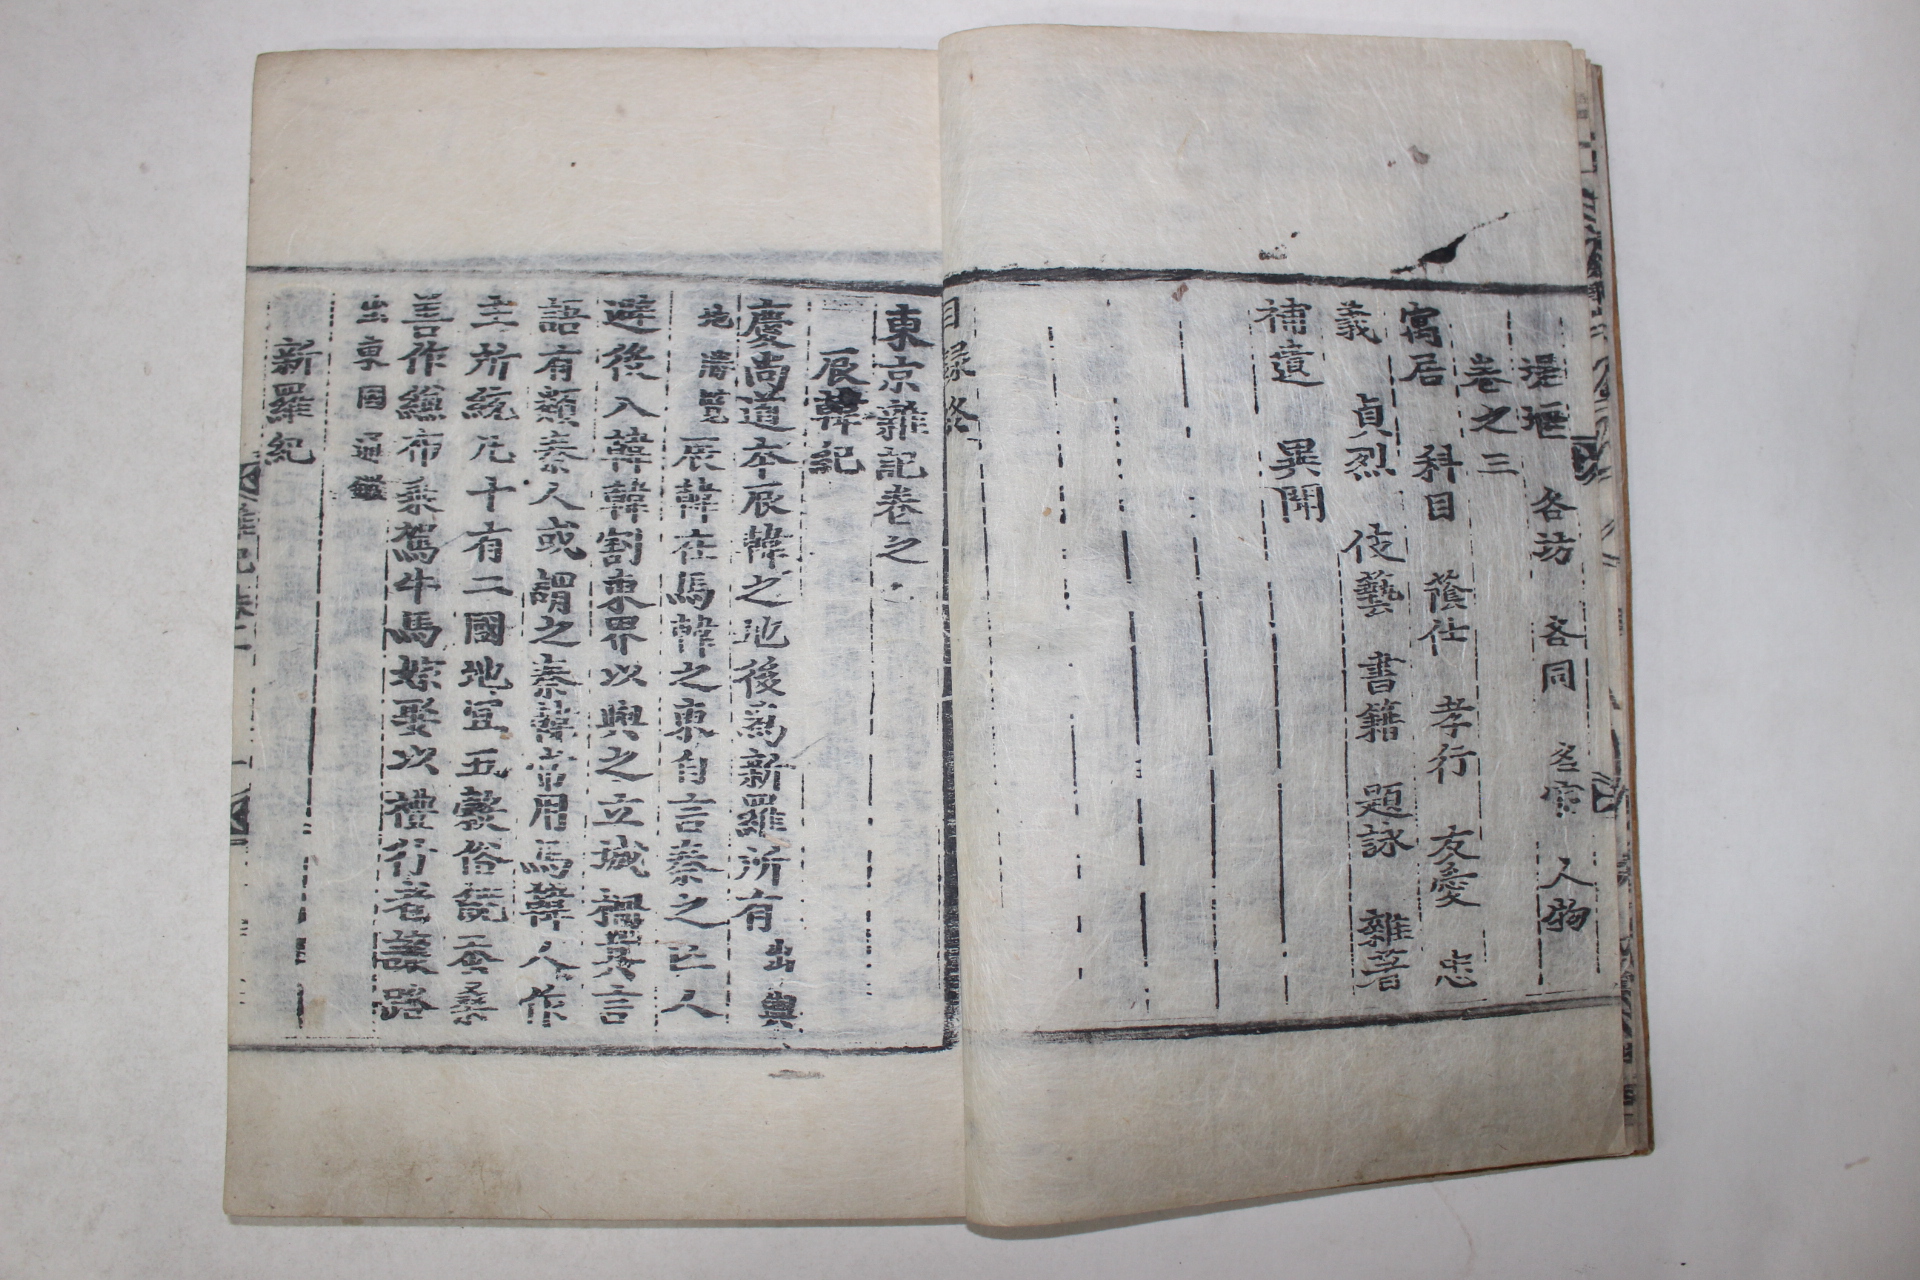 堤堰 各坊 各同 名宦 人物
卷之三
寓居 科目 蔭仕 孝行 友愛 忠
義 貞烈 伎藝 書籍 題詠 雜著
補遺 異聞
目錄終
東京雜記卷之
辰韓紀
慶尚道本辰韓之地後爲新羅所有 出輿
地勝覽 辰韓在馬韓之東自言秦之亡人
避役入韓韓割東界以與之立城柵其言
語有類秦人或謂之秦韓常用馬韓人作
主所統凡十有二國地宜五穀俗饒蚕桑
善作縑布乘駕牛馬嫁娶以禮行者讓路
出東國通鑑
新羅紀